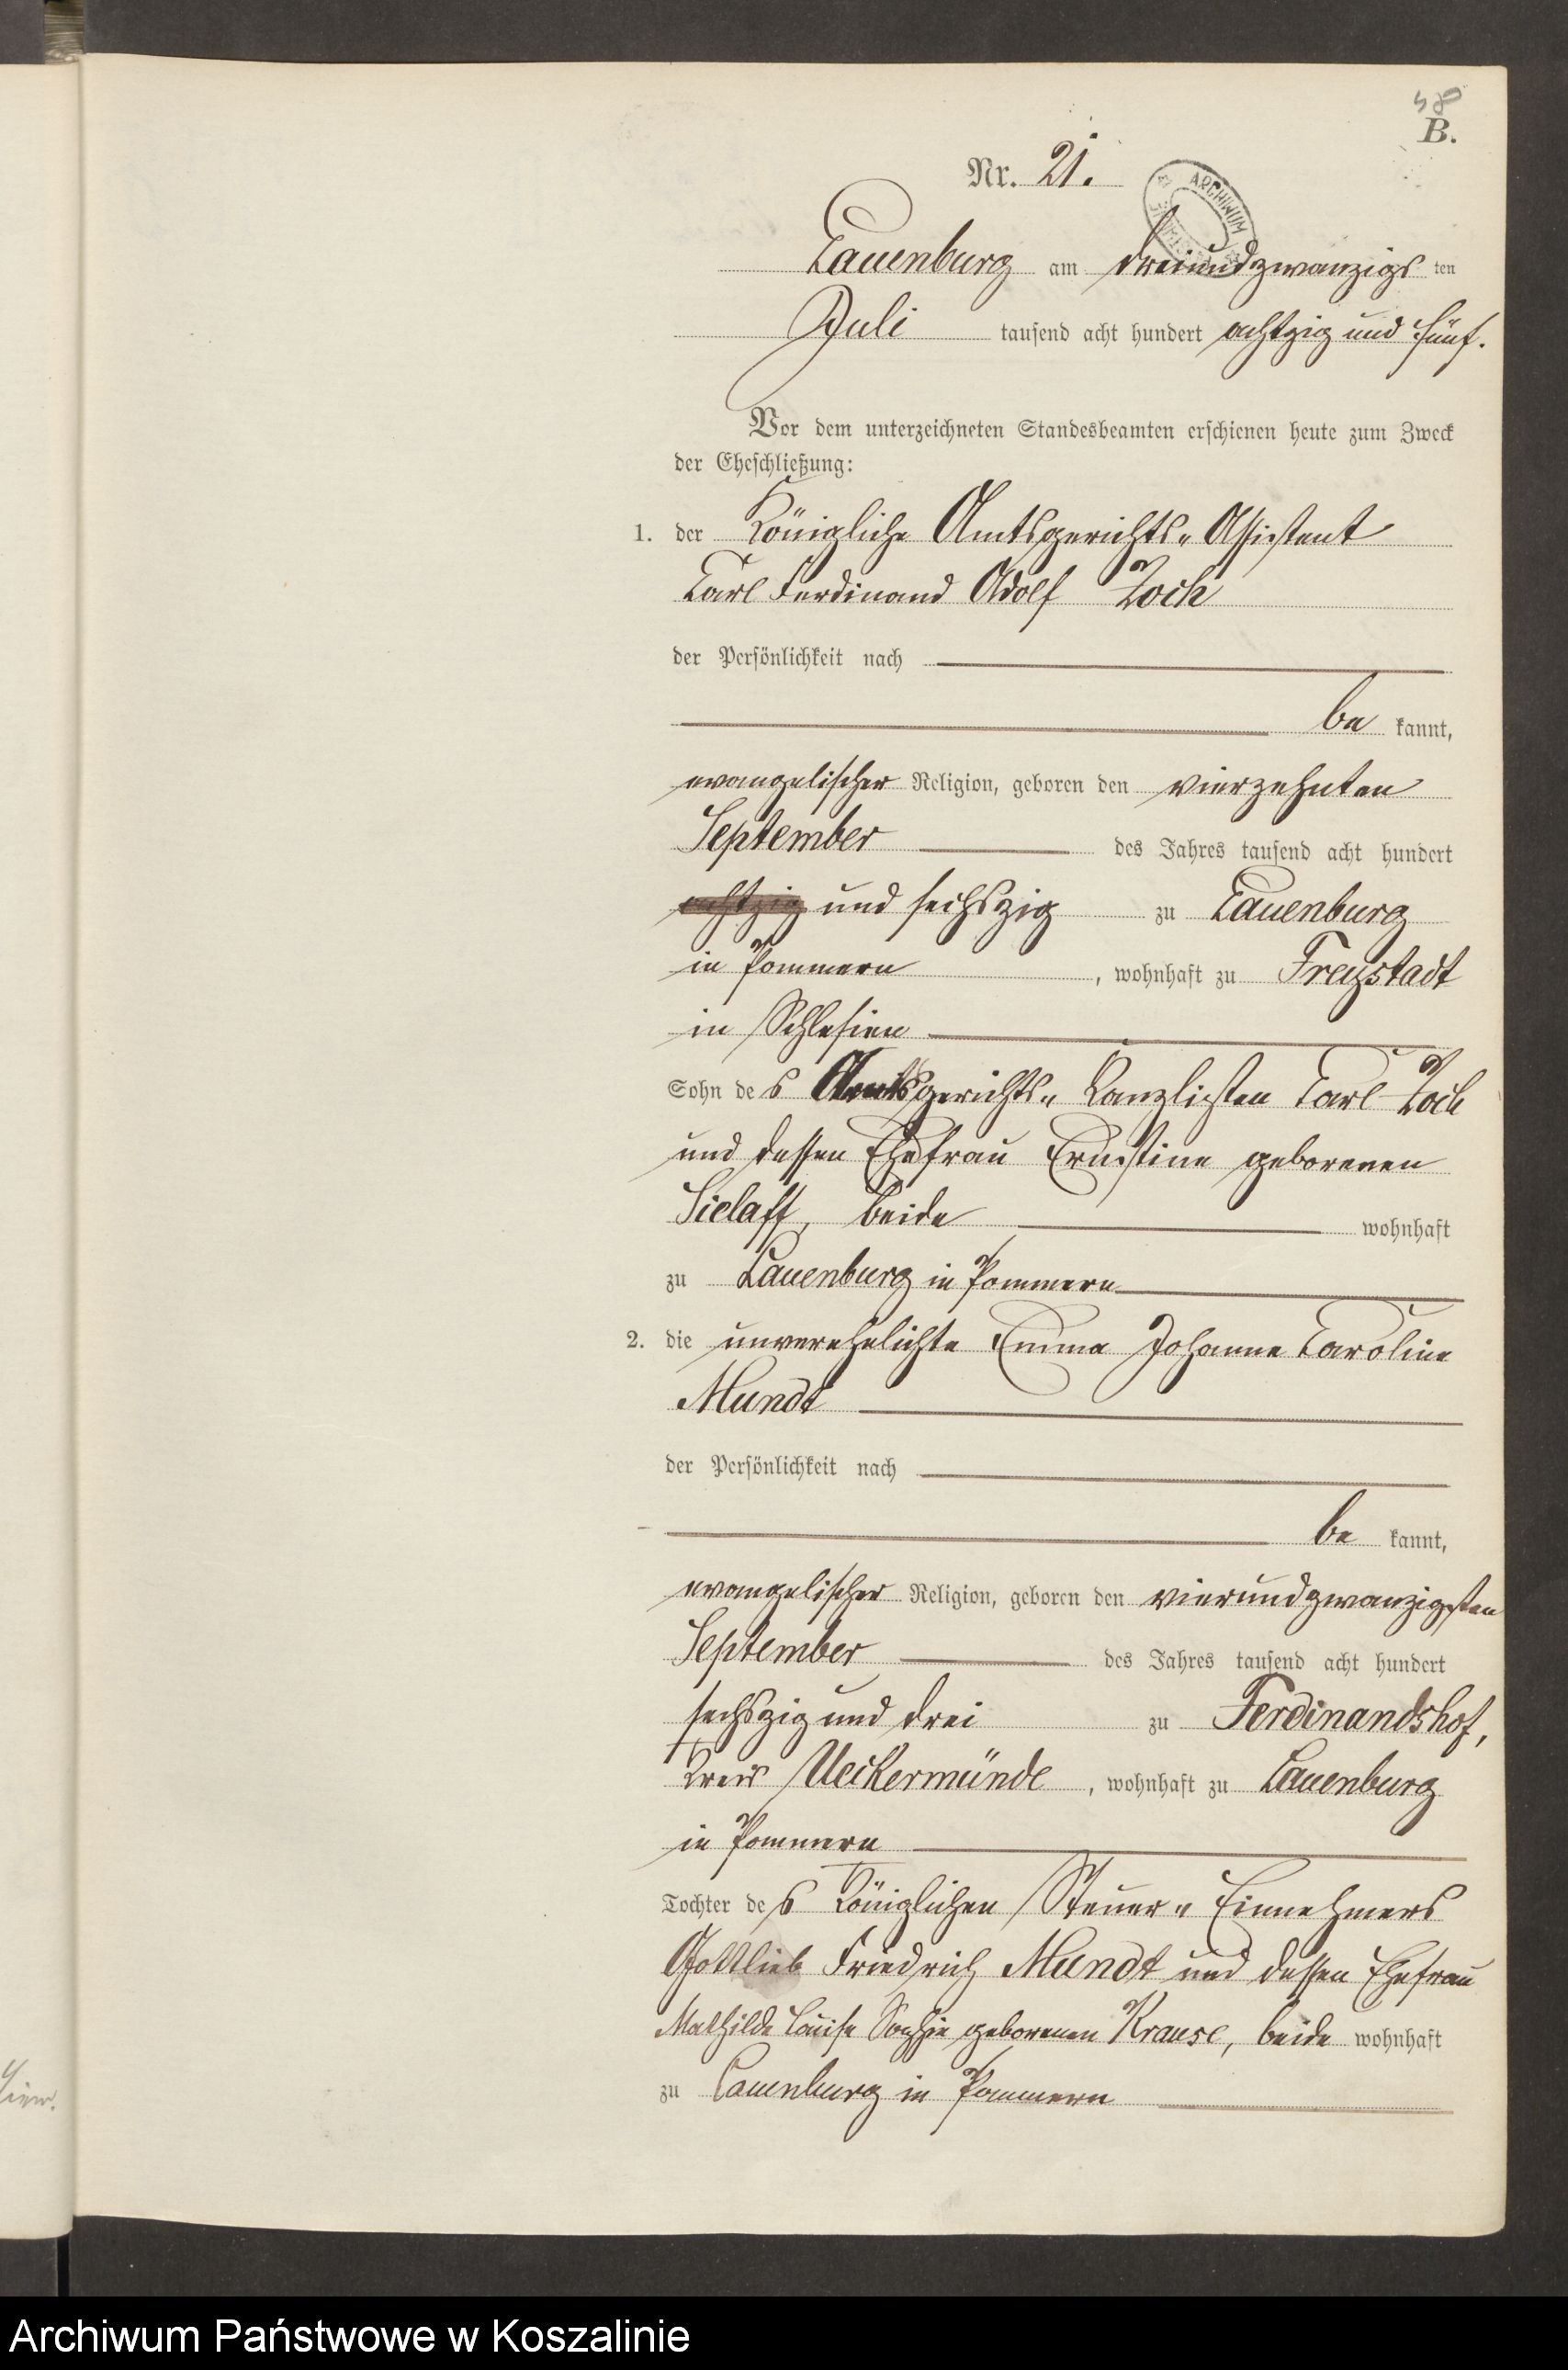 48
B.
Nr. 21.
ARCHIWUM
Lauenburg am dreiundzwanzigs ten
Juli tausend acht hundert achtzig und fünf.
Vor dem unterzeichneten Standesbeamten erschienen heute zum Zweck
der Eheschließung:
1. der Königliche Amtsgerichts-Assistent
Carl Ferdinand Adolf Zoch
der Persönlichkeit nach
be kannt,
evangelischer Religion, geboren den vierzehnten
September des Jahres tausend acht hundert
achtzig und sechszig zu Lauenburg
in Pommern, wohnhaft zu Freystadt
in Schlesien
Sohn des Amtsgerichts-Kanzlisten Carl Zoch
und dessen Ehefrau Ernestine geborenen
Sielaff, beide wohnhaft
zu Lauenburg in Pommern
2. die unverehelichte Emma Johanne Caroline
Mundt
der Persönlichkeit nach
be kannt,
evangelischer Religion, geboren den vierundzwanzigsten
September des Jahres tausend acht hundert
sechszig und drei zu Ferdinandshof,
Kreis Ueckermünde, wohnhaft zu Lauenburg
in Pommern
Tochter des Königlichen Steuer-Einnehmers
Gottlieb Friedrich Mundt und dessen Ehefrau
Mathilde Louise Sophie geborenen Krause, beide wohnhaft
zu Lauenburg in Pommern
Archiwum Państwowe w Koszalinie